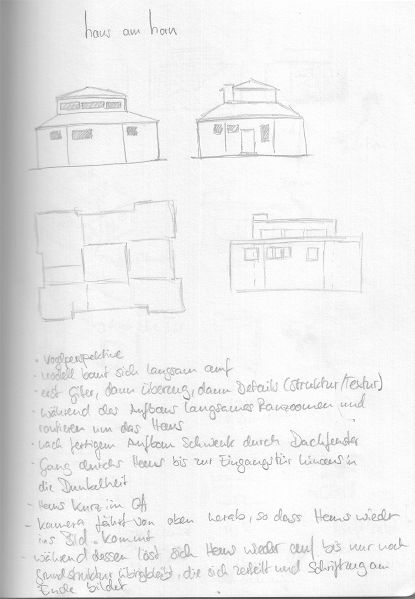 haus am horn
- Vogelperspektive
- modell baut sich langsam auf
- erst Gitter, dann Überzug, dann Details (Struktur/Textur)
- während des Aufbaus langsames Ranzoomen und
rotieren um das Haus
- nach fertigem Aufbau Schwenk durch Dachfenster
- Gang durchs Haus bis zur Eingangstür hinaus in
die Dunkelheit
- Haus kurz im Off
- Kamera fährt von oben herab, so dass Haus wieder
ins Bild kommt
- während dessen löst sich Haus wieder auf bis nur noch
Grundstruktur übrigbleibt, die sich zerteilt und Schriftzug am
Ende bildet